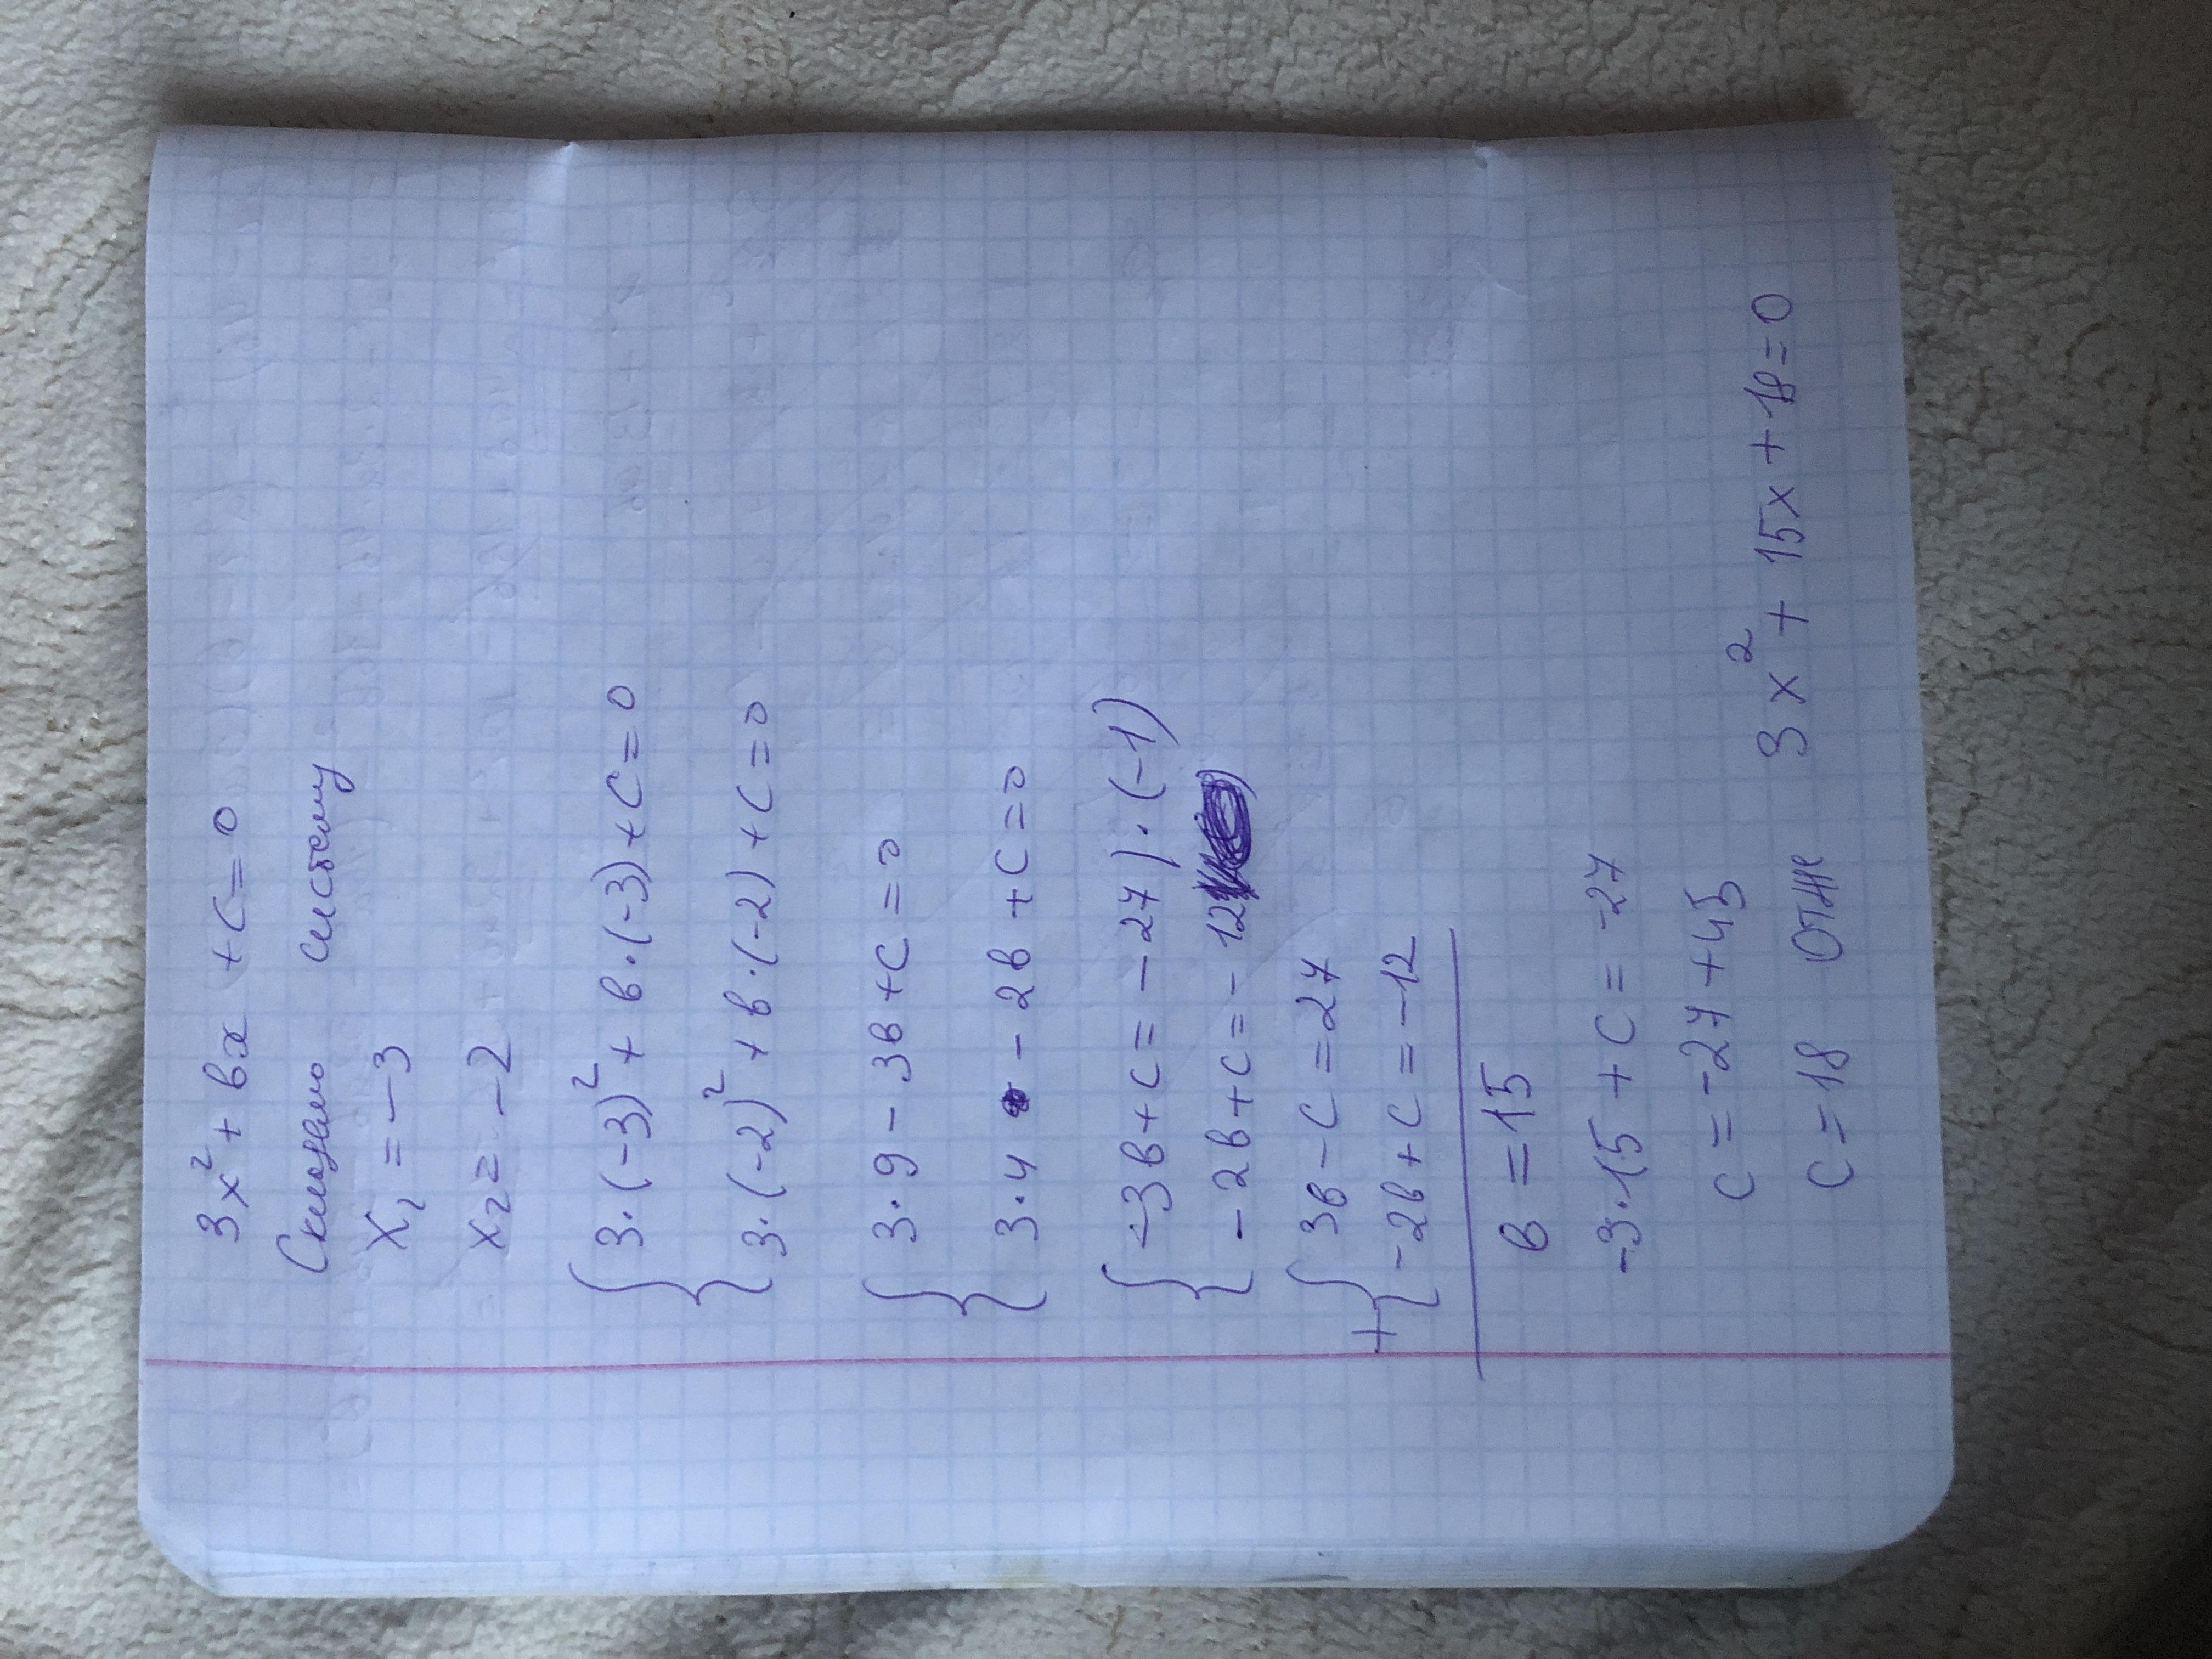 3x² + вx + c = 0
Складемо систему
x₁ = -3
x₂ = -2
{ 3·(-3)² + в·(-3) + c = 0
3·(-2)² + в·(-2) + c = 0
{ 3·9 - 3в + c = 0
3·4 - 2в + c = 0
{ -3в + c = -27 | ·(-1)
-2в + c = -12
+ { 3в - c = 27
-2в + c = -12
в = 15
-3·15 + c = -27
c = -27 + 45
c = 18 отже 3x² + 15x + 18 = 0